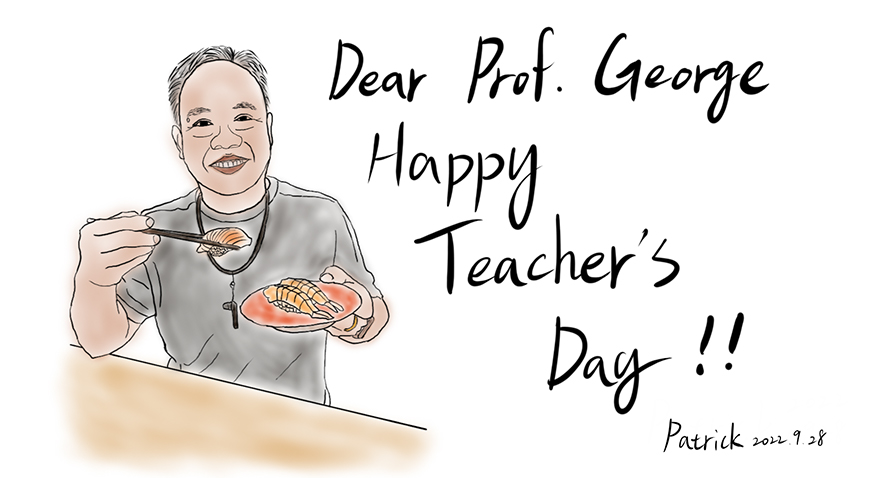 Dear Prof. George
Happy
Teacher's
Day !!
Patrick 2022.9.28